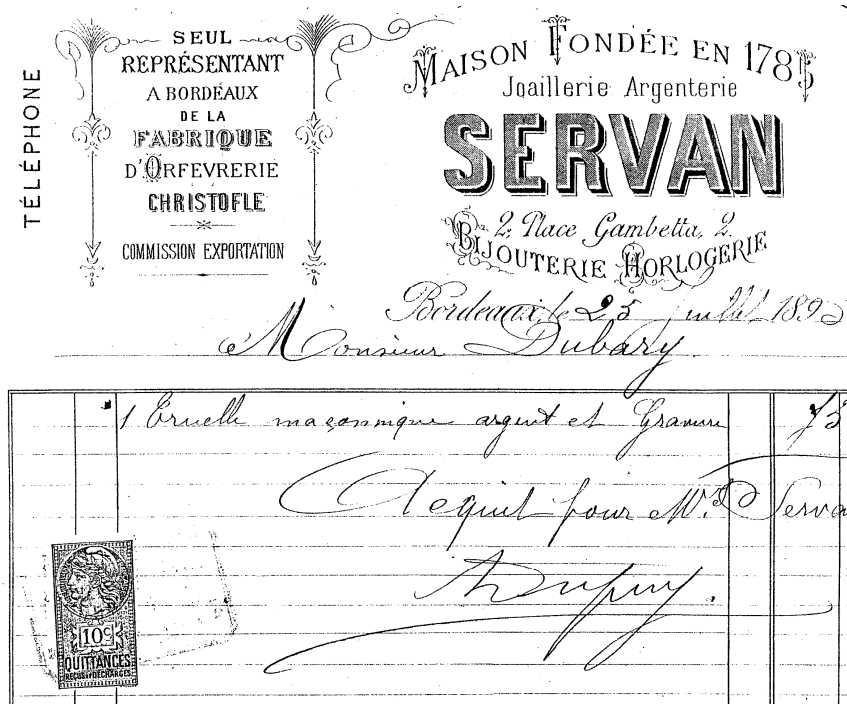 TÉLÉPHONE
SEUL
REPRÉSENTANT
A BORDEAUX
DE LA
FABRIQUE
D'ORFEVRERIE
CHRISTOFLE
COMMISSION EXPORTATION
MAISON FONDÉE EN 1785
Joaillerie Argenterie
SERVAN
2, Place Gambetta, 2.
BIJOUTERIE HORLOGERIE
Bordeaux, le 25 juillet 189
Monsieur Dubary
1 Truelle maçonnique argent et Gravure 75
Acquit pour Mr. Serva
Dupuy.
10c
QUITTANCES
REÇUS ET DÉCHARGES